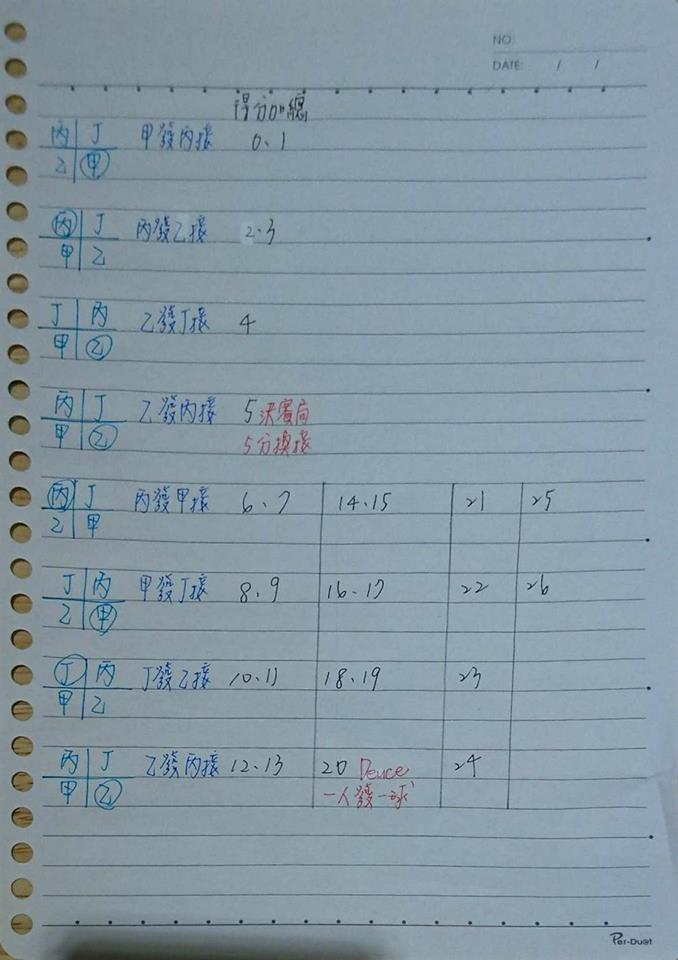 NO
DATE: / /
得分加總
丙 丁 甲發丙接 0.1
乙 甲
丙 丁 丙發乙接 2.3
甲 乙
丁 丙 乙發丁接 4
甲 乙
丙 丁 乙發丙接 5 決賽局
甲 乙 5分換接
丙 丁 丙發甲接 6.7 14.15 21 25
乙 甲
丁 丙 甲發丁接 8.9 16.17 22 26
乙 甲
丁 丙 丁發乙接 10.11 18.19 23
甲 乙
丙 丁 乙發丙接 12.13 20 Deuce 24
甲 乙 一人發一球
Per-Duet